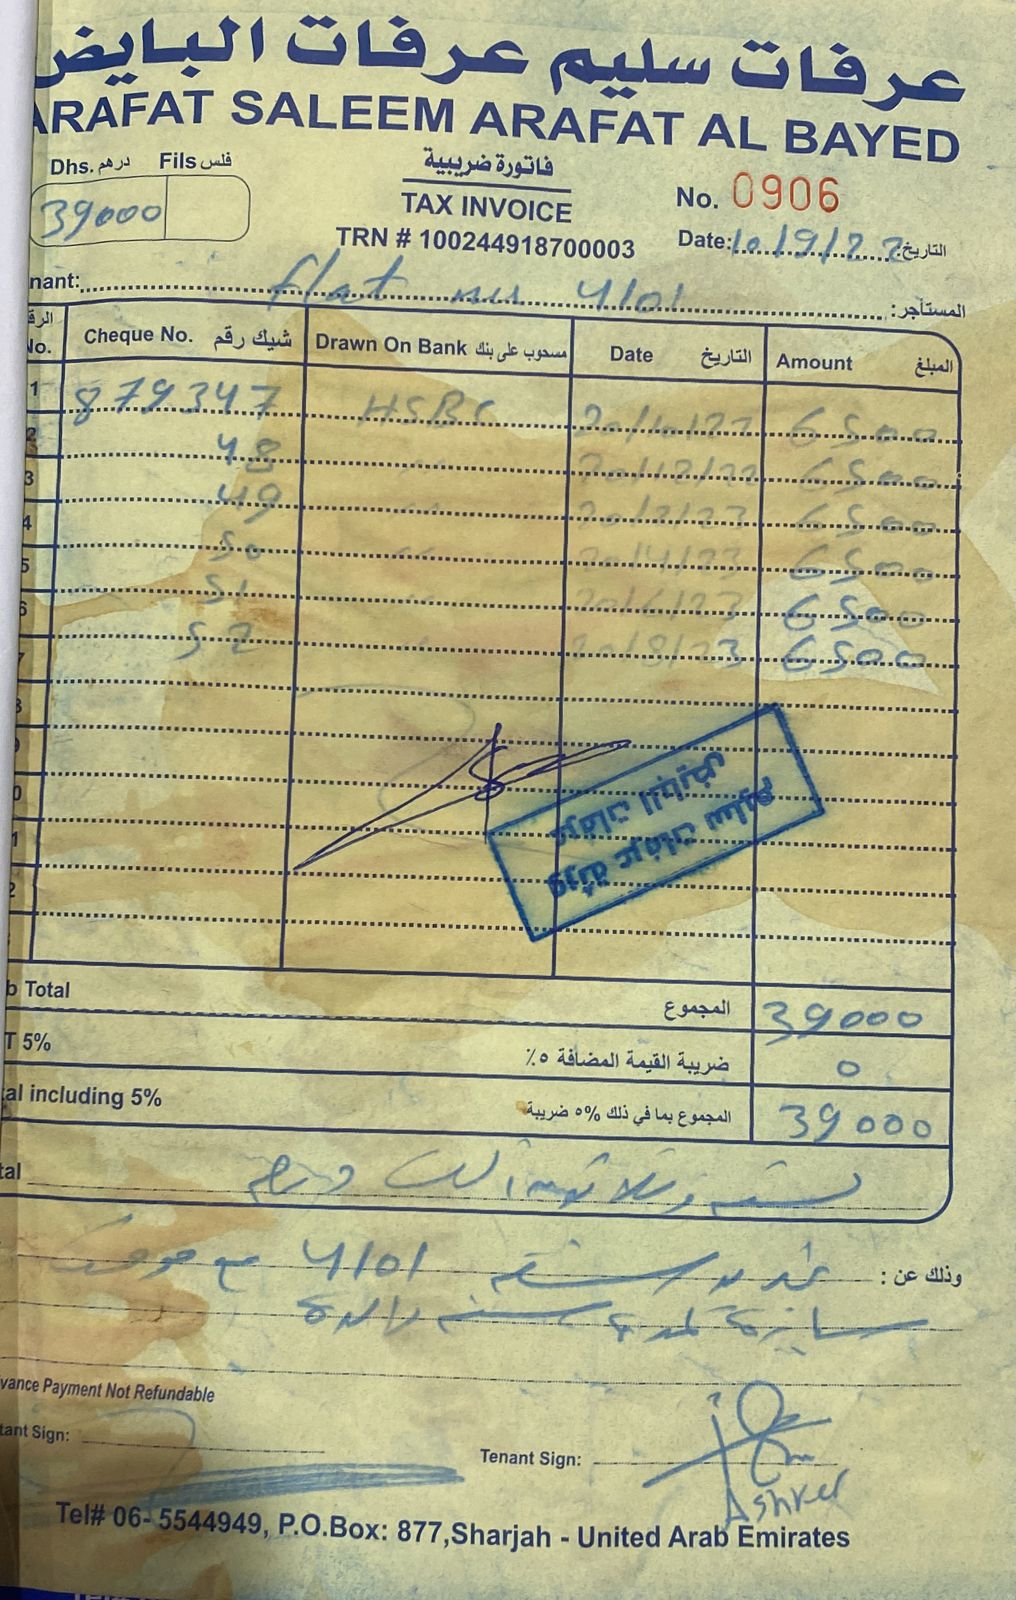 عرفات سليم عرفات البايض
ARAFAT SALEEM ARAFAT AL BAYED
Dhs. درهم Fils فلس
39000
فاتورة ضريبية
TAX INVOICE
TRN # 100244918700003
No. 0906
Date: 10/9/22 التاريخ:
nant: flat no 4101 المستأجر:
الرق No. Cheque No. شيك رقم Drawn On Bank مسحوب على بنك Date التاريخ Amount المبلغ
1 879347 HSBC 20/10/22 6500
2 48 " 20/12/22 6500
3 49 " 20/2/23 6500
4 50 " 20/4/23 6500
5 51 20/6/23 6500
6 52 " 20/8/23 6500
7
عرفات سليم
عرفات البايض
b Total المجموع 39000
T 5% ضريبة القيمة المضافة ٥٪ 0
al including 5% المجموع بما في ذلك %٥ ضريبة 39000
tal تسعة وثلاثون ألف درهم
وذلك عن: تجديد شقة 4101 مع موقف
سيارة لمدة سنة واحدة
vance Payment Not Refundable
tant Sign:
Tenant Sign:
Ashker
Tel# 06- 5544949, P.O.Box: 877,Sharjah - United Arab Emirates